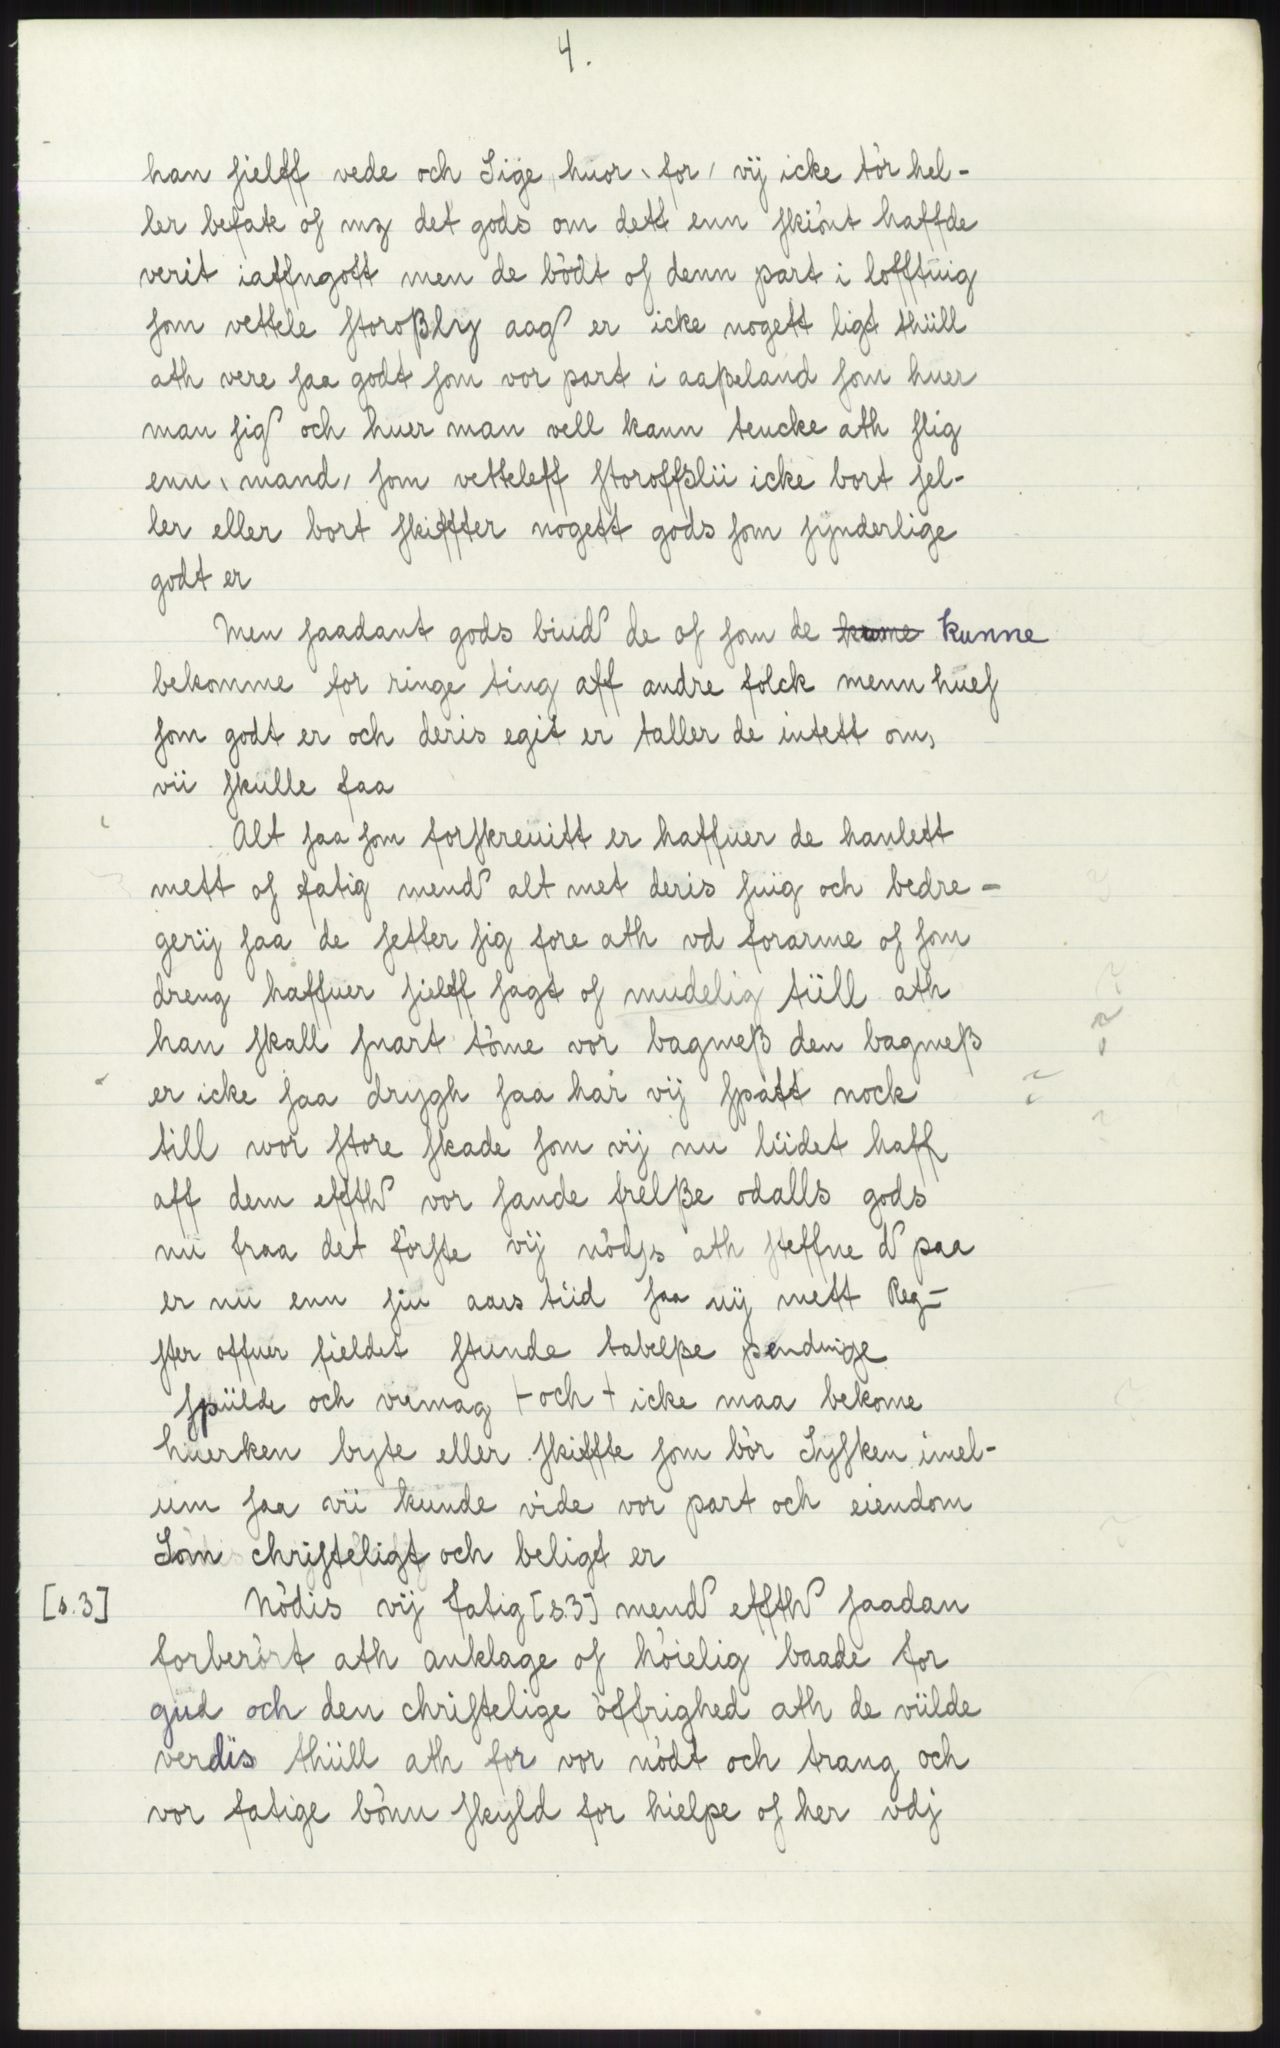 4.
han sielff vede och Sige huor ˎ for ˏ vij icke tør hel-
ler befate os mz det gods om dett enn skiönt haffde
verit iaffngott men de bödt os denn part i lofftuig
som vettele storoßlij aag er icke nogett ligt thüll
ath vere saa godt som vor part i aaßeland som huer
man sig och huer man vell kann tencke ath slig
enn ˎ mand ˏ som vetteleff storoffslii icke bort sel-
ler eller bort skiffter nogett gods som synderlige
godt er
Men saadant gods biud de os som de kunne kunne
bekomme for ringe ting aff andre folck menn hues
som godt er och deris egit er taller de intett om,
vii skulle faa
Alt saa som forskreuitt er haffuer de hanlett
mett os fatig mend alt met deris suig och bedre-
gerij saa de setter sig fore ath vd forarme os som
dreng haffuer sielff sagt os mudelig tüll ath
han skall snart töme vor bagmeß den bagmeß
er icke saa drygh saa har vij spatt nock
till wor store skade som vij nu liidet haff
aff dem effth vor sande frelße odalls gods
nu fraa det förste vij nödss ath steffne d paa
er nu enn siu aars tiid saa uij mett Reg-
ster offuer fieldet stunde tabelße pendinge
spülde och vumag + och + icke maa bekome
huerken byte eller skiffte som bör Sysken imel-
um saa vii kunde vide vor part och eiendom
Som christeligt och beligt er
[s.3] Nödis vij fatig [s.3] mend effth saadan
forberört ath anklage os höielig baade for
gud och den christelige öffrighed ath de vülde
verdis thüll ath for vor nödt och trang och
vor fatige bönn skyld for hielpe os her vdj